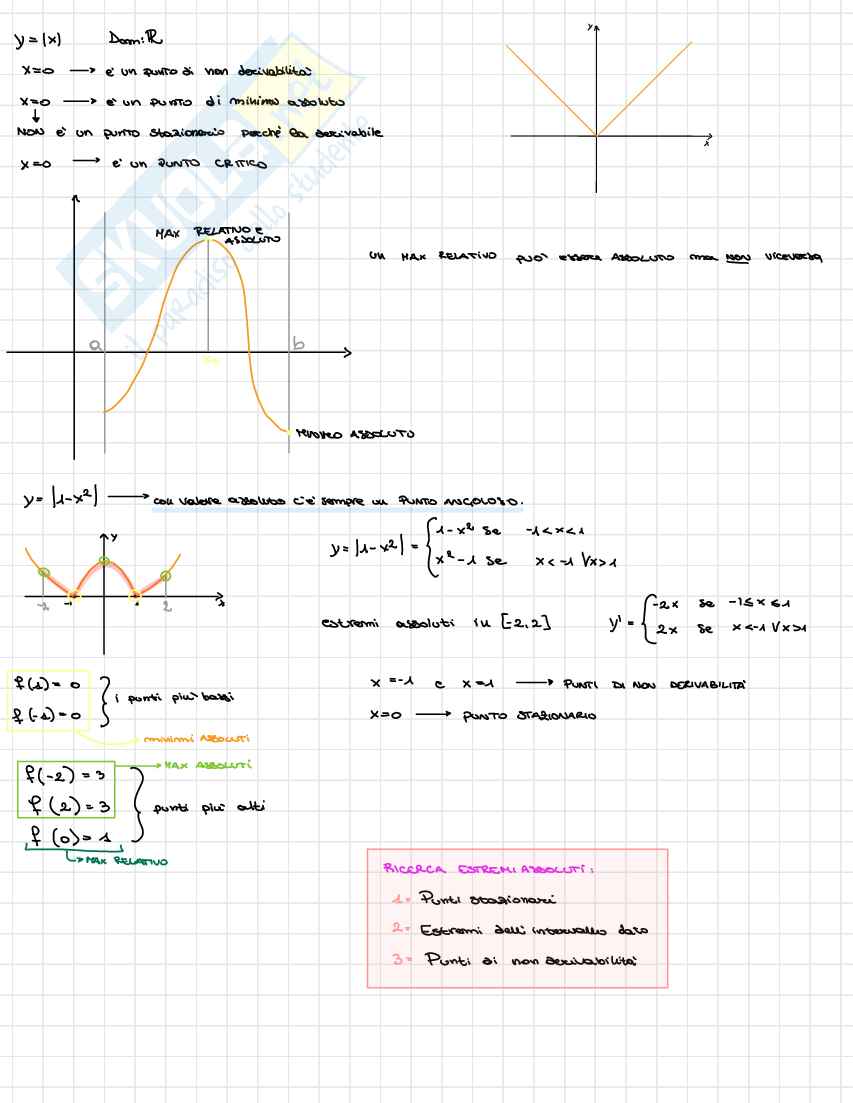 y = |x| Dom: ℝ
x=0 → e' un punto di non derivabilità
x=0 → e' un punto di minimo assoluto
↓
NON e' un punto stazionario perché la derivabile
x=0 → e' un PUNTO CRITICO
y
x
MAX RELATIVO E
ASSOLUTO
un MAX RELATIVO puo' ESSERA ASSOLUTO ma NON VICEVERSA
a
b
ASSOLUTO
y = |1-x²| → con valore assoluto c'e' sempre un PUNTO ANGOLOSO.
y = |1-x²| = { 1-x² se -1<x<1
x²-1 se x<-1 ∨ x>1
y
x
-2 -1 1 2
estremi assoluti in [-2,2]
y' = { -2x se -1≤x≤1
2x se x<-1 ∨ x>1
f(1) = 0
f(-1) = 0
} i punti piu' bassi
minimi ASSOLUTI
x=-1 e x=1 → PUNTI DI NON DERIVABILITA'
x=0 → PUNTO STAZIONARIO
f(-2) = 3
→ MAX ASSOLUTI
f(2) = 3
} punti piu' alti
f(0) = 1
→ MAX RELATIVO
RICERCA ESTREMI ASSOLUTI:
1= Punti stazionari
2= Estremi dell'intervallo dato
3= Punti di non derivabilita'
SKUOLA.net
il paradiso dello studente